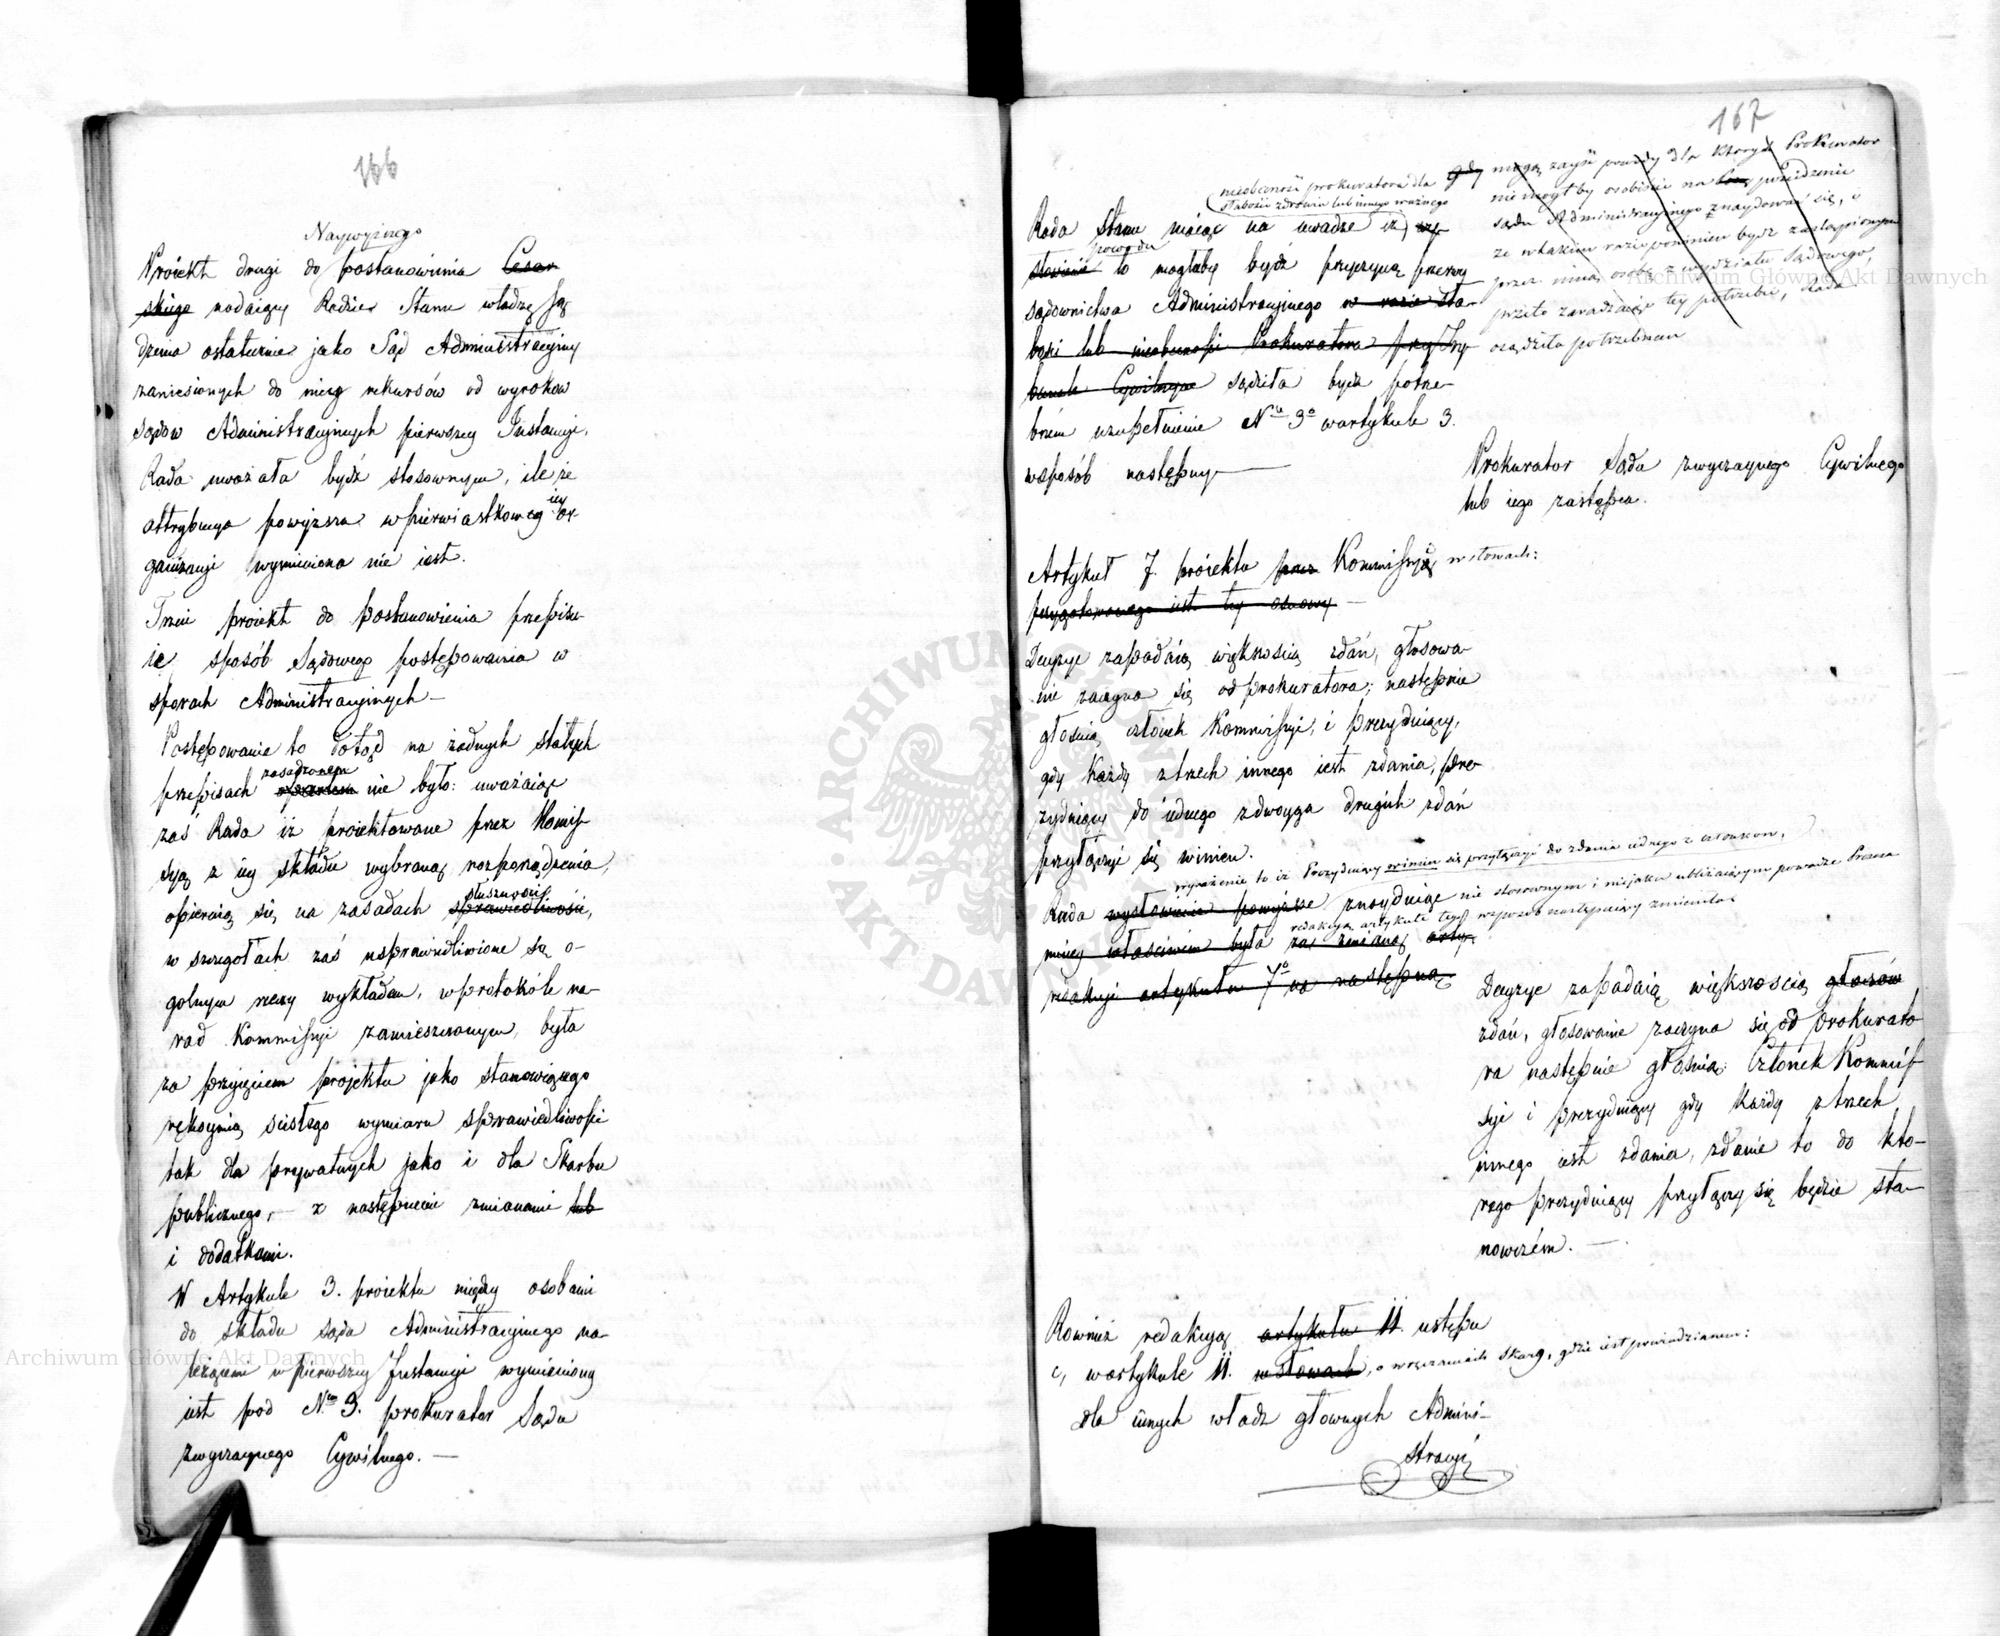 166
Naywyższego
Proiekt drugi do postanowienia Cesar
skiego nadaiący Radzie Stanu władzę Są
dzenia ostatecznie jako Sąd Administracyiny
zaniesionych do niey rekursów od wyroków
Sądów Administracyjnych pierwszey Instancyi,
Rada uważała bydź stosownym, ile że
attrybucya powyższa w pierwiastkowey iey or-
ganizacyi wymieniona nie iest.
Trzeci proiekt do postanowienia przepisu-
ie sposób Sądowego postępowania w
sporach Administracyjnych —
Postępowanie to dotąd na żadnych stałych
zasadzonem
przepisach opartem nie było: uważaiąc
zaś Rada iż proiektowane przez Komis-
syą z iey składu wybraną rozporządzenia,
słuszności
opieraią się na zasadach sprawiedliwości,
w szczegółach zaś usprawiedliwione są o-
gólnym rzeczy wykładem, w protokóle na-
rad Kommissyi zamieszczonym, była
za przyjęciem projektu jako stanowiącego
rękoymią ścisłego wymiaru sprawiedliwości
tak dla prywatnych jako i dla Skarbu
publicznego, — z następnemi zmianami lub
i dodatkami.
W Artykule 3. proiektu między osobami
do składu sądu Administracyinego na-
leżącemi w pierwszey Instancyi wymieniony
iest pod Nrem 3. prokurator Sądu
zwyczaynego Cywilnego. —
167
nieobecność prokuratora dla
słabości zdrowia lub innego ważnego
Rada Stanu maiąc na uwadze iż wy-
powodu
słowienie to mogłaby bydź przyczyną przerwy
sądownictwa Administracyinego w razie sła-
bości lub nieobecności Prokuratora przy Try-
bunale Cywilnym sądziła bydź potrze-
bném uzupełnienie Nru 3o w artykule 3.
w sposób następny —
gdy mogą zayść powody dla których Prokurator
nie mógłby osobiście na posiedzeniu
sądu Administracyinego znaydować się, i
że w takim razie powinien bydź zastąpionym
przez inną osobę z wydziału Sądowego,
przeto zaradzaiąc tey potrzebie, Rada
osądziła potrzebnem
Prokurator Sądu zwyczaynego Cywilnego
lub iego zastępca.
Artykuł 7. proiektu przez Kommissyą w słowach:
przygotowanego iest tey osnowy —
Decyzye zapadaią większością zdań, głosowa-
nie zaczyna się od prokuratora; następnie
głosuią członek Kommissyi, i prezyduiący,
gdy każdy z trzech innego iest zdania, pre-
zyduiący do iednego z dwoyga drugich zdań
przyłączyć się winien.
wyrażenie to iż Prezyduiący winien się przyłączyć do zdania iednego z członków,
Rada wysłowienie powyższe znayduiąc nie stosownym i niejako ubliżaiącym powadze Preza
redakcyą artykułu tego w sposób następuiący zmieniła
mniey właściwém była za zmianą arty-
redakcyi artykułu 7o na następną
Decyzye zapadaią większością głosów
zdań, głosowanie zaczyna się od prokurato
ra następnie głosuią: Członek Kommis-
syi i prezyduiący gdy każdy z trzech
innego iest zdania, zdanie to do któ-
rego prezyduiący przyłączy się będzie sta-
nowczém. —
Również redakcyą artykułu 11. ustępu
c, w artykule 11. w słowach, o wręczaniach skarg, gdzie iest powiedzianem:
dla innych władz głównych Admini-
stracyi